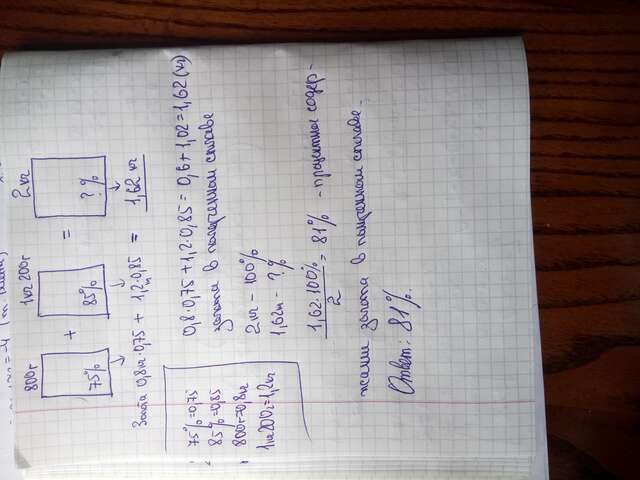 800г 1кг 200г 2кг
75% + 85% = ? %
Золота 0,8кг·0,75 + 1,2·0,85 = 1,62 кг
75%=0,75
85%=0,85
800г=0,8кг
1кг200г=1,2кг
0,8·0,75+1,2·0,85=0,6+1,02=1,62(кг)
золота в полученном сплаве
2кг – 100%
1,62кг – ?%
1,62·100%
2
= 81% – процентное содер-
жание золота в полученном сплаве.
Ответ: 81%.